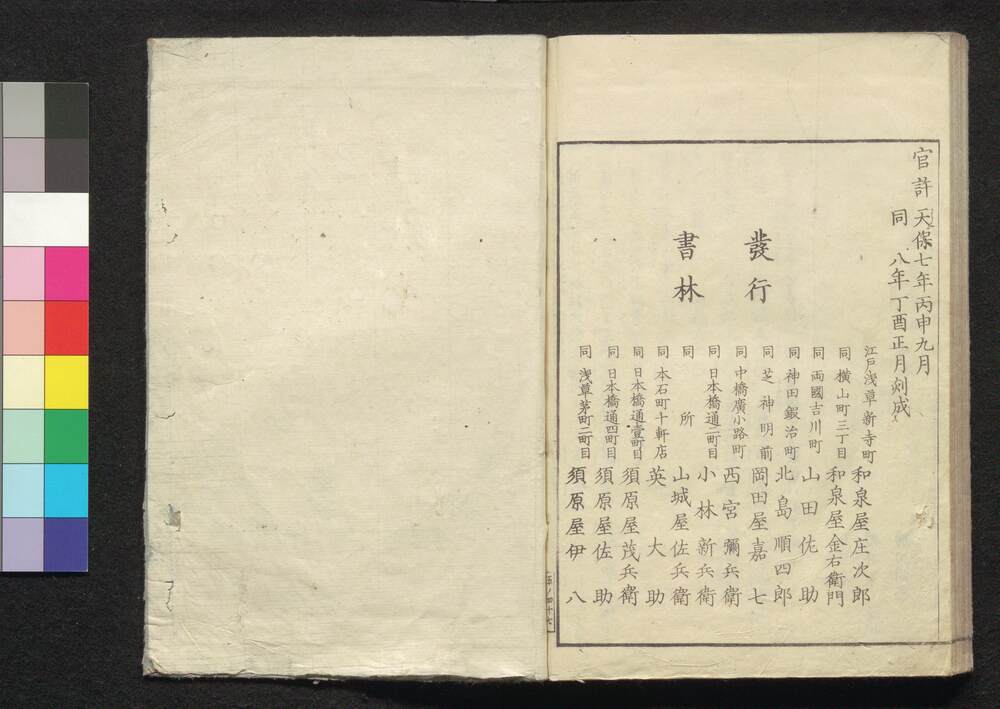 官許 天保七年丙申九月
同 八年丁酉正月刻成
發行
書林
江戸浅草新寺町 和泉屋庄次郎
同 横山町三丁目 和泉屋金右衛門
同 両國吉川町 山田佐助
同 神田鍛冶町 北島順四郎
同 芝神明前 岡田屋嘉七
同 中橋廣小路町 西宮彌兵衛
同 日本橋通二町目 小林新兵衛
同 所 山城屋佐兵衛
同 本石町十軒店 英大助
同 日本橋通壹町目 須原屋茂兵衛
同 日本橋通四町目 須原屋佐助
同 浅草茅町二町目 須原屋伊八
五ノ四十六